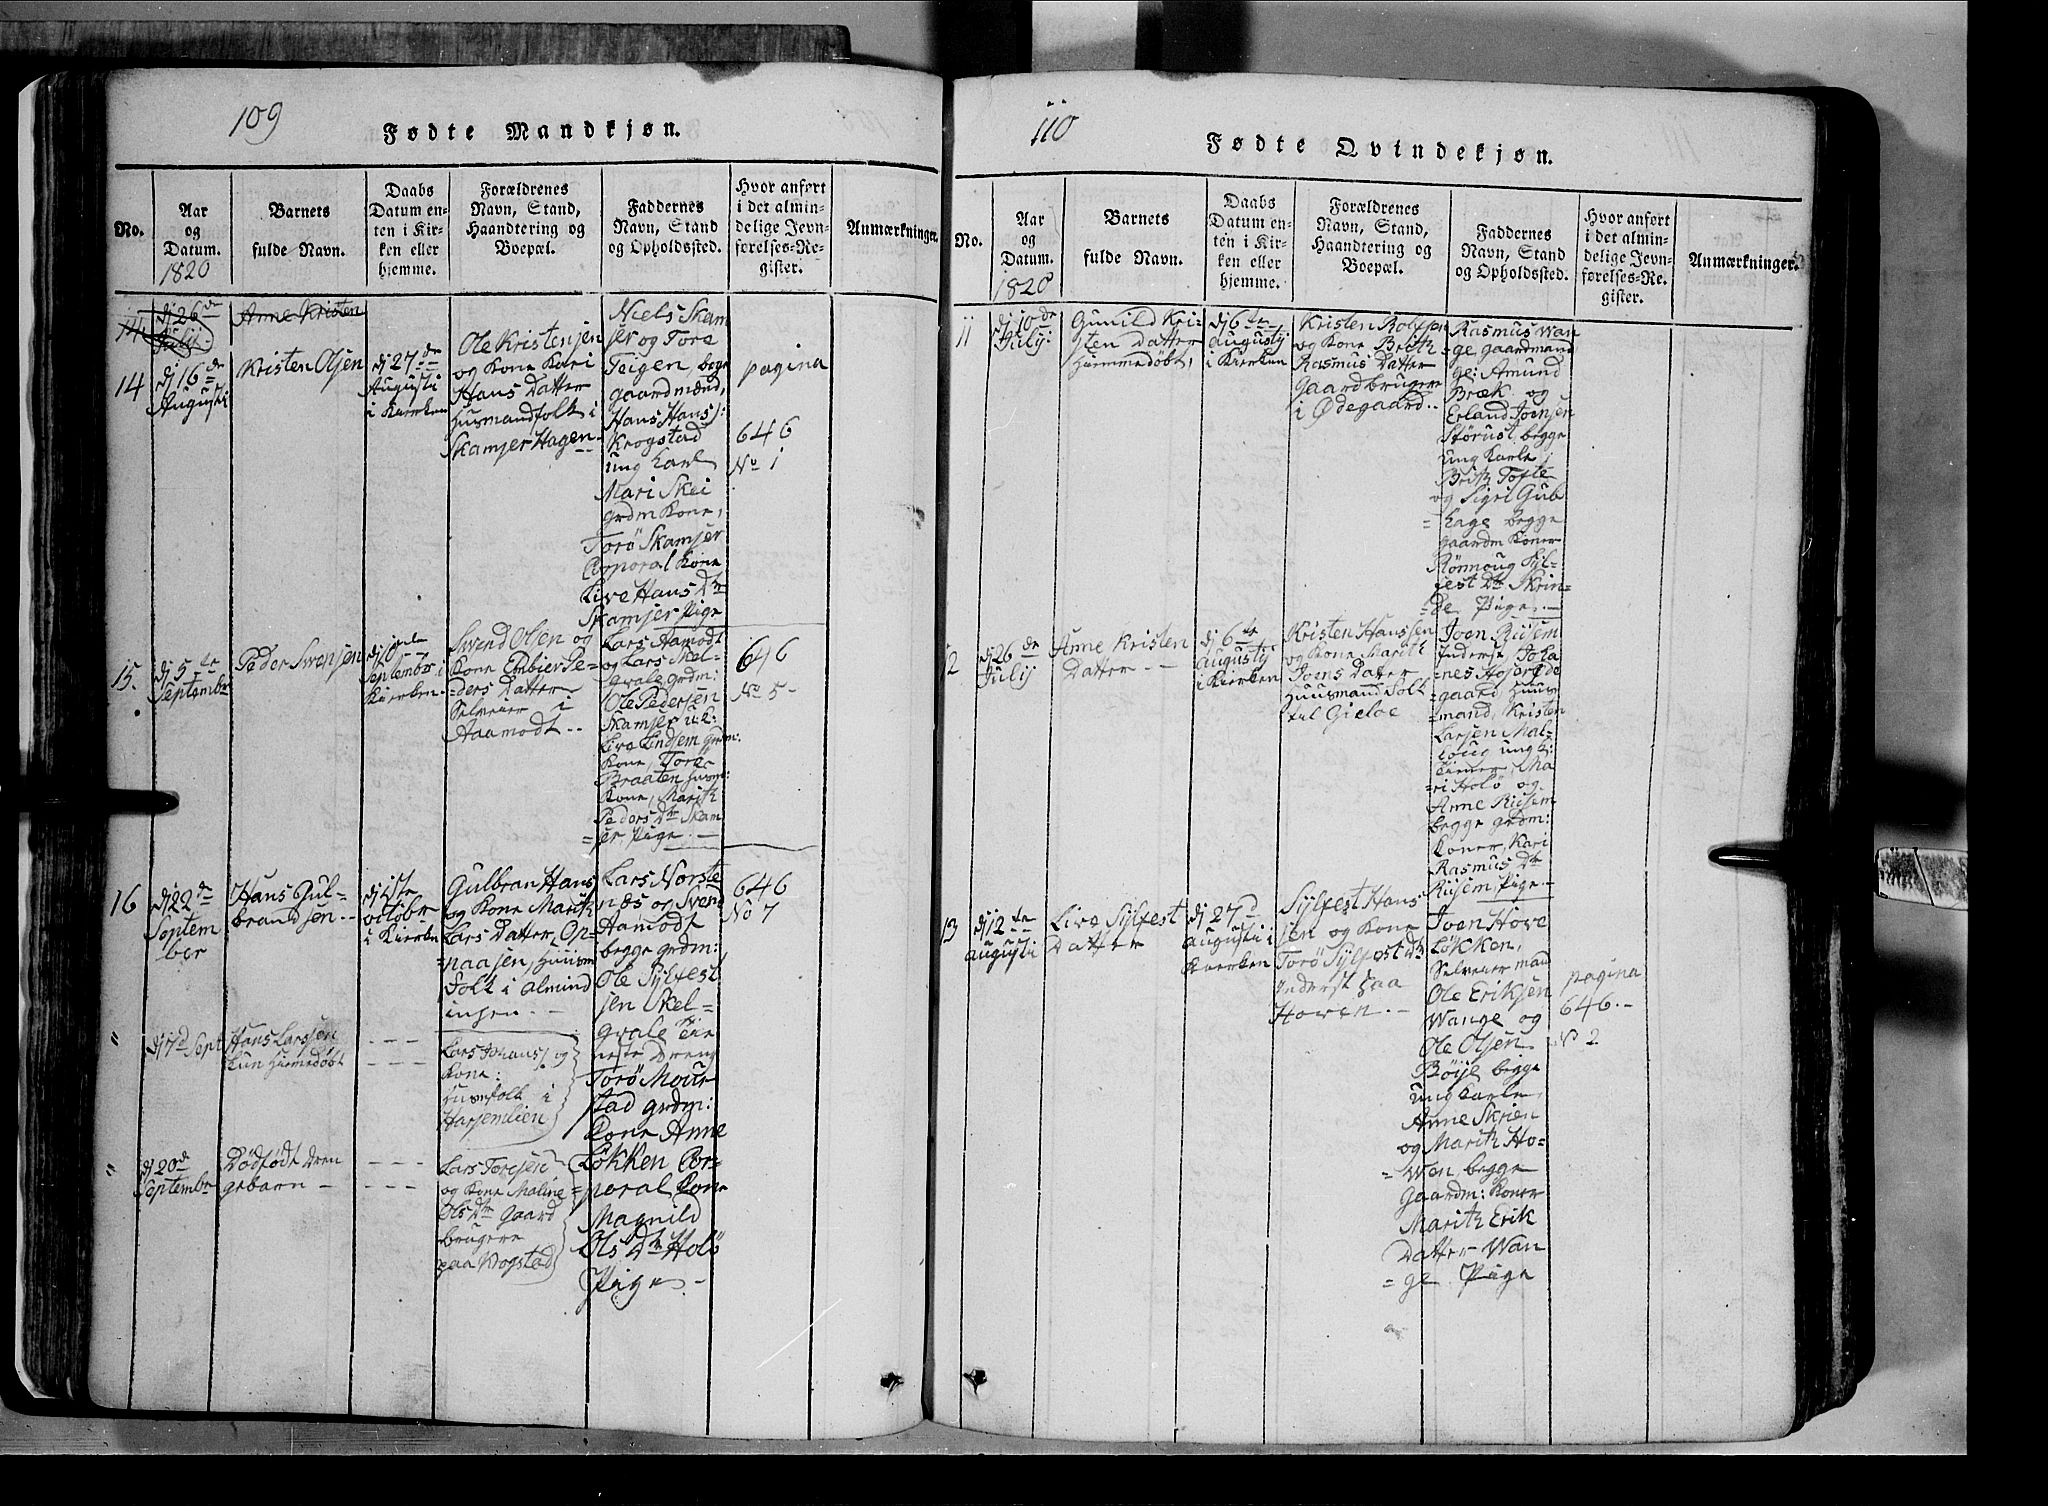 109
Fødte Mandkjøn.
No.
Aar
og
Datum.
1820
Barnets
fulde Navn.
Daabs
Datum en-
ten i Kir-
ken eller
hjemme.
Forældrenes
Navn, Stand,
Haandtering og
Boepæl.
Faddernes
Navn, Stand
og Opholdssted.
Hvor anført
i det almin-
delige Jevn-
førelses-Re-
gister.
Anmærkninger.
14.
dj 26de
Julij.
Anne Kristen
14
dj 16de
Augusti
Kristen Olsen
dj 27de
Augusti
i Kierken
Ole Kristensen
og Kone Kari
Hans Datter
Husmandfolk i
Skamser Hagen.
Niels Skam
ser og Tore
Teigen, begge
gaardmænd,
Hans Hans):
Krogstad
ung karl
Mari Skei
grdm Kone,
Torø Skamser
Corporal Kone
Live Hans Dtr
Skamser Pige
pagina
646
No 1
15.
dj 5te
Septembr
Peder Svensen
dj 10de
Septembr i
Kierken
Svend Olsen og
Kone Embier Pe-
=ders Datter
Selveier i
Aamodt..
Lars Aamodt
og Lars Skel-
gvale grdm:
Ole Pedersen
Skamser u.k.
Live Lindsem grdm:
Kone, Tore
Braaten husm:
Kone, Marith
Peders Dtr Skam
=ser, Pige.
646
No 5
16
dj 22de
Septem
ber
Hans Gul-
brandsen..
dj 1ste
octobr
i Kierken
Gulbran Hans
og Kone Marith
Lars Datter, Op-
=naasen, Huusm
Folk i Almind
ingen.
Lars Norste
næs og Svend
Aamodt
begge grdm:
Ole Sylfest
sen Skel-
gvale Tie
neste Dreng
Torø Mour
stad grdm:
Kone Anne
Løkken Cor-
=poral Kone
Magnild
Ols Dtr Holø
Pige.
646
No 7
"
dj 17d Sept
Hans Larssen
kun hiemedøbt
Lars Johans) og
Kone:
Husmfolk i
Harsemlien
"
dj 20d
Septembr
Dødfødt Dren
gebarn
Lars Toresen
og Kone Maline
Ols Dtr Gaard
brugere
paa Krogstad
110
Fødte Qvindekjøn.
No.
Aar
og
Datum.
1820
Barnets
fulde Navn.
Daabs
Datum en-
ten i Kir-
ken eller
hjemme.
Forældrenes
Navn, Stand,
Haandtering og
Boepæl.
Faddernes
Navn, Stand
og Opholdssted.
Hvor anført
i det almin-
delige Jevn-
førelses-Re-
gister.
Anmærkninger.
11
dj 10de
Julij:
Gunild Kri-
sten Datter
hiemmedøbt,
dj 6te
Augustij
i Kierken
Kristen Rolfsen
og Kone Brith
Rasmus Datter
Gaardbrugere
i Ødegaard..
Rasmus Wan
=ge gaardmand
ge: Amund
Bræk og
Erland Joensen
Størust, begge
ung Karle,
Brith Tofte
og Sigri Gub
=hage begge
gaardm Koner
Rønnoug Sil-
fest Dtr Skrin-
=de, Pige.
12
dj 26de
Julij
Anne Kristen
Datter
dj 6te
Augustij
i Kierken
Kristen Hanssen
og Kone Marith
Joens Datter
Huusmand Folk
til Gieloe
Joen Riisem
Inderst, Joha
nes Hosøede
=gaard Huus
mand, Kristen
Larsen Mal-
loug ung k:
Tiener, Ma
=ri Holø og
Anne Riisem
begge grdm:
koner, Kari
Rasmus Dtr
Riisem, pige.
13
dj 12te
Augusti
Live Sylfest
Datter
dj 27d
Augusti i
Kierken
Sylfest Hans
sen og Kone
Torø Sylfest Dtr
Inderst paa
Hoven.
Joen Hove
Løkken,
Selveiermand
Ole Eriksen
Wange og
Ole Olsen
Bøije begge
ung karle,
Anne Skrien
og Marith Ho-
=wen, begge
Gaardm: koner
Marith Erik
Datter Wan
=ge. Pige
pagina
646.
No 2